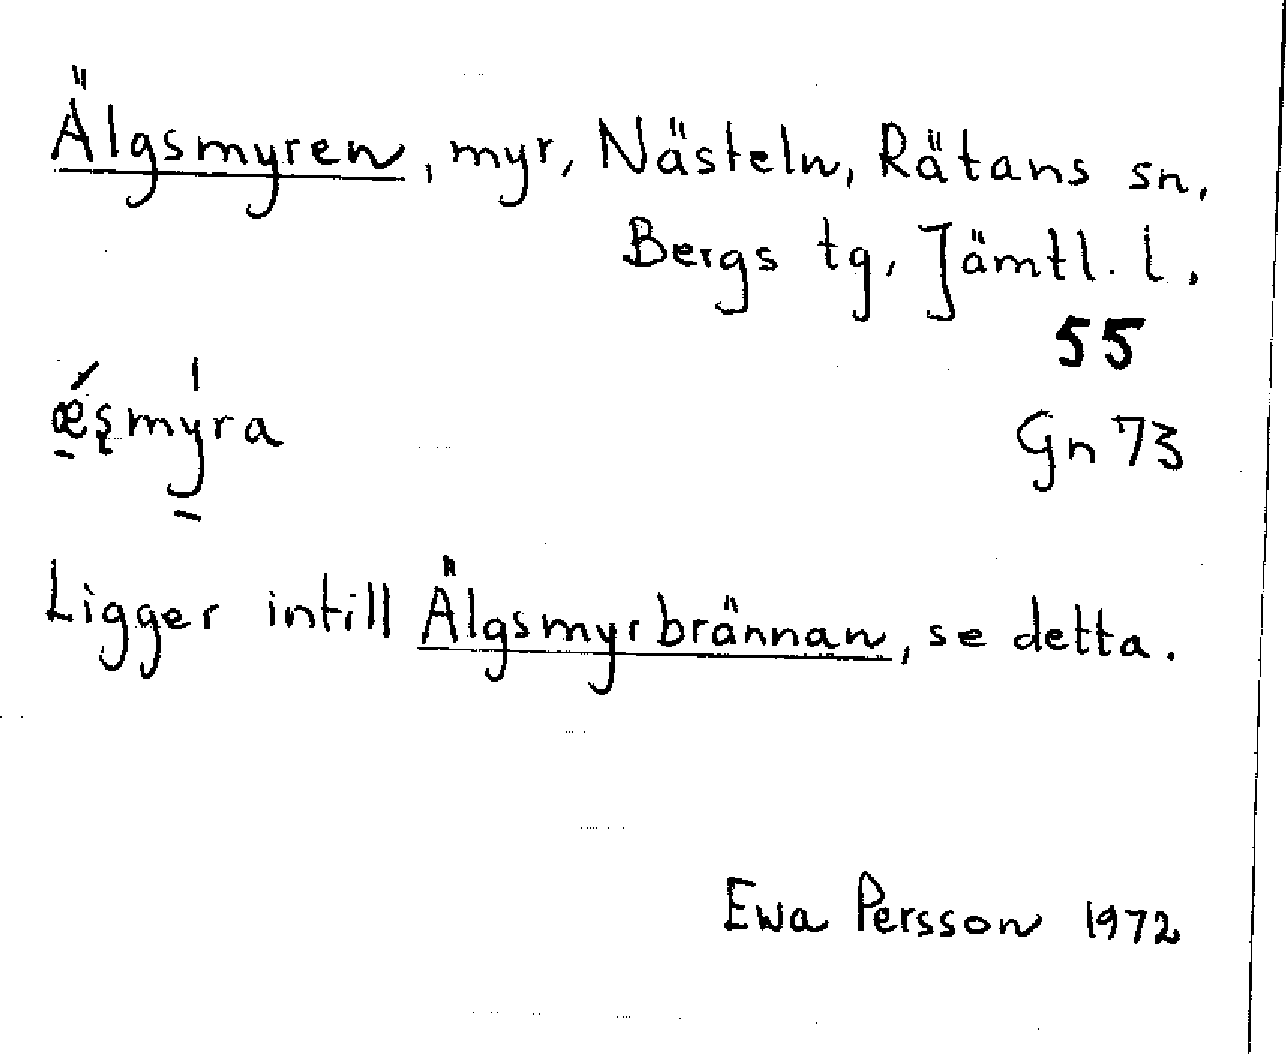 Älgsmyren, myr, Nästeln, Rätans sn,
Bergs tg, Jämtl. l.
55
ǽ̠s̢mý̠ra
Gn 73
Ligger intill Älgsmyrbrännan, se detta.
Ewa Persson 1972